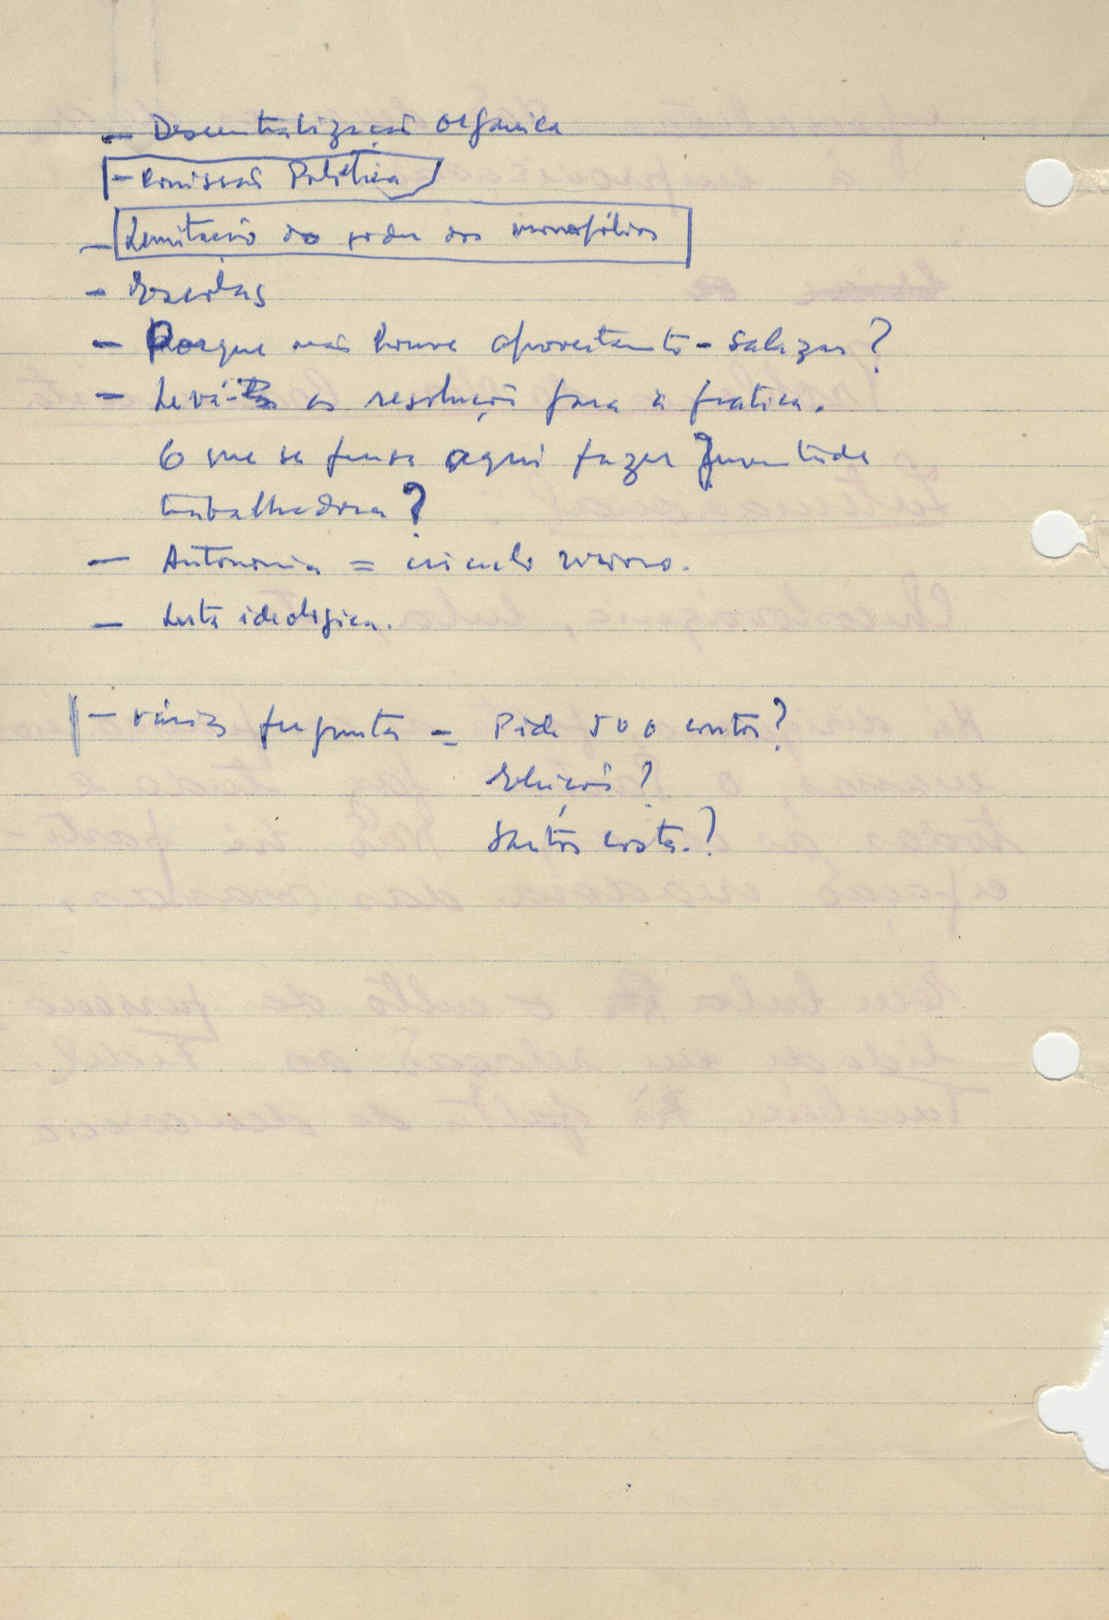 — Descentralização organica
— Comissão Política
— Limitação do poder dos monopólios
— Escritas
— Porque não houve aproveitamento - Salazar?
— Levá- as resoluções para a pratica.
O que se pensa aqui fazer Juventude
trabalhadora?
— Autonomia = circulo vicioso.
— Luta ideologica.
— várias perguntas = Pide 500 contos?
Eleições?
Santos Costa.?